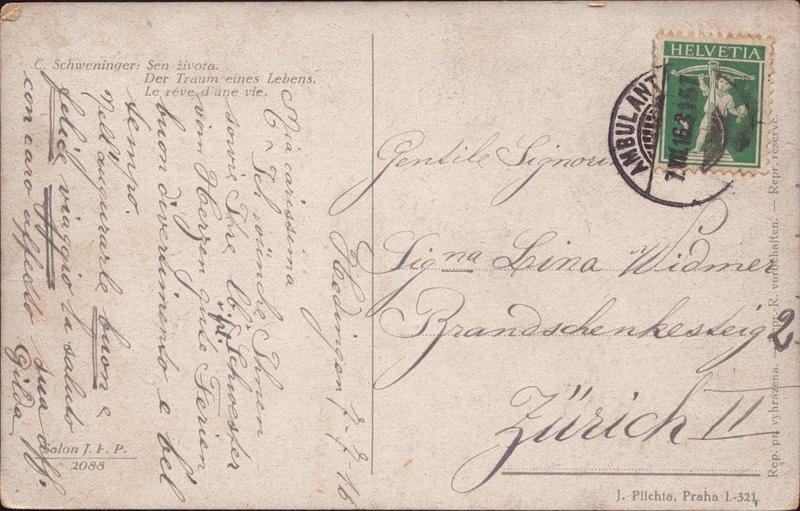 C. Schweninger: Sen života.
Der Traum eines Lebens.
Le rêve d'une vie.
Hedingen, 7-7-16
Mia carissima
Ich wünsche Ihnen
sowie Ihre lb. Schwester
vom Herzen gute Ferien
buon divertimento e bel
tempo.
Nell'augurarle buon e
felice viaggio la saluto
con caro affetto sua aff.
Gilda
Salon J. P. P.
2088
HELVETIA
AMBULANT
7.VII.16.8
Gentile Signorina
Signa Lina Widmer
Brandschenkesteig 2
Zürich II
J. Plichta, Praha I.-321
Rep. pr. vyhražena. — Repr.-R. vorbehalten. — Repr. réservé.